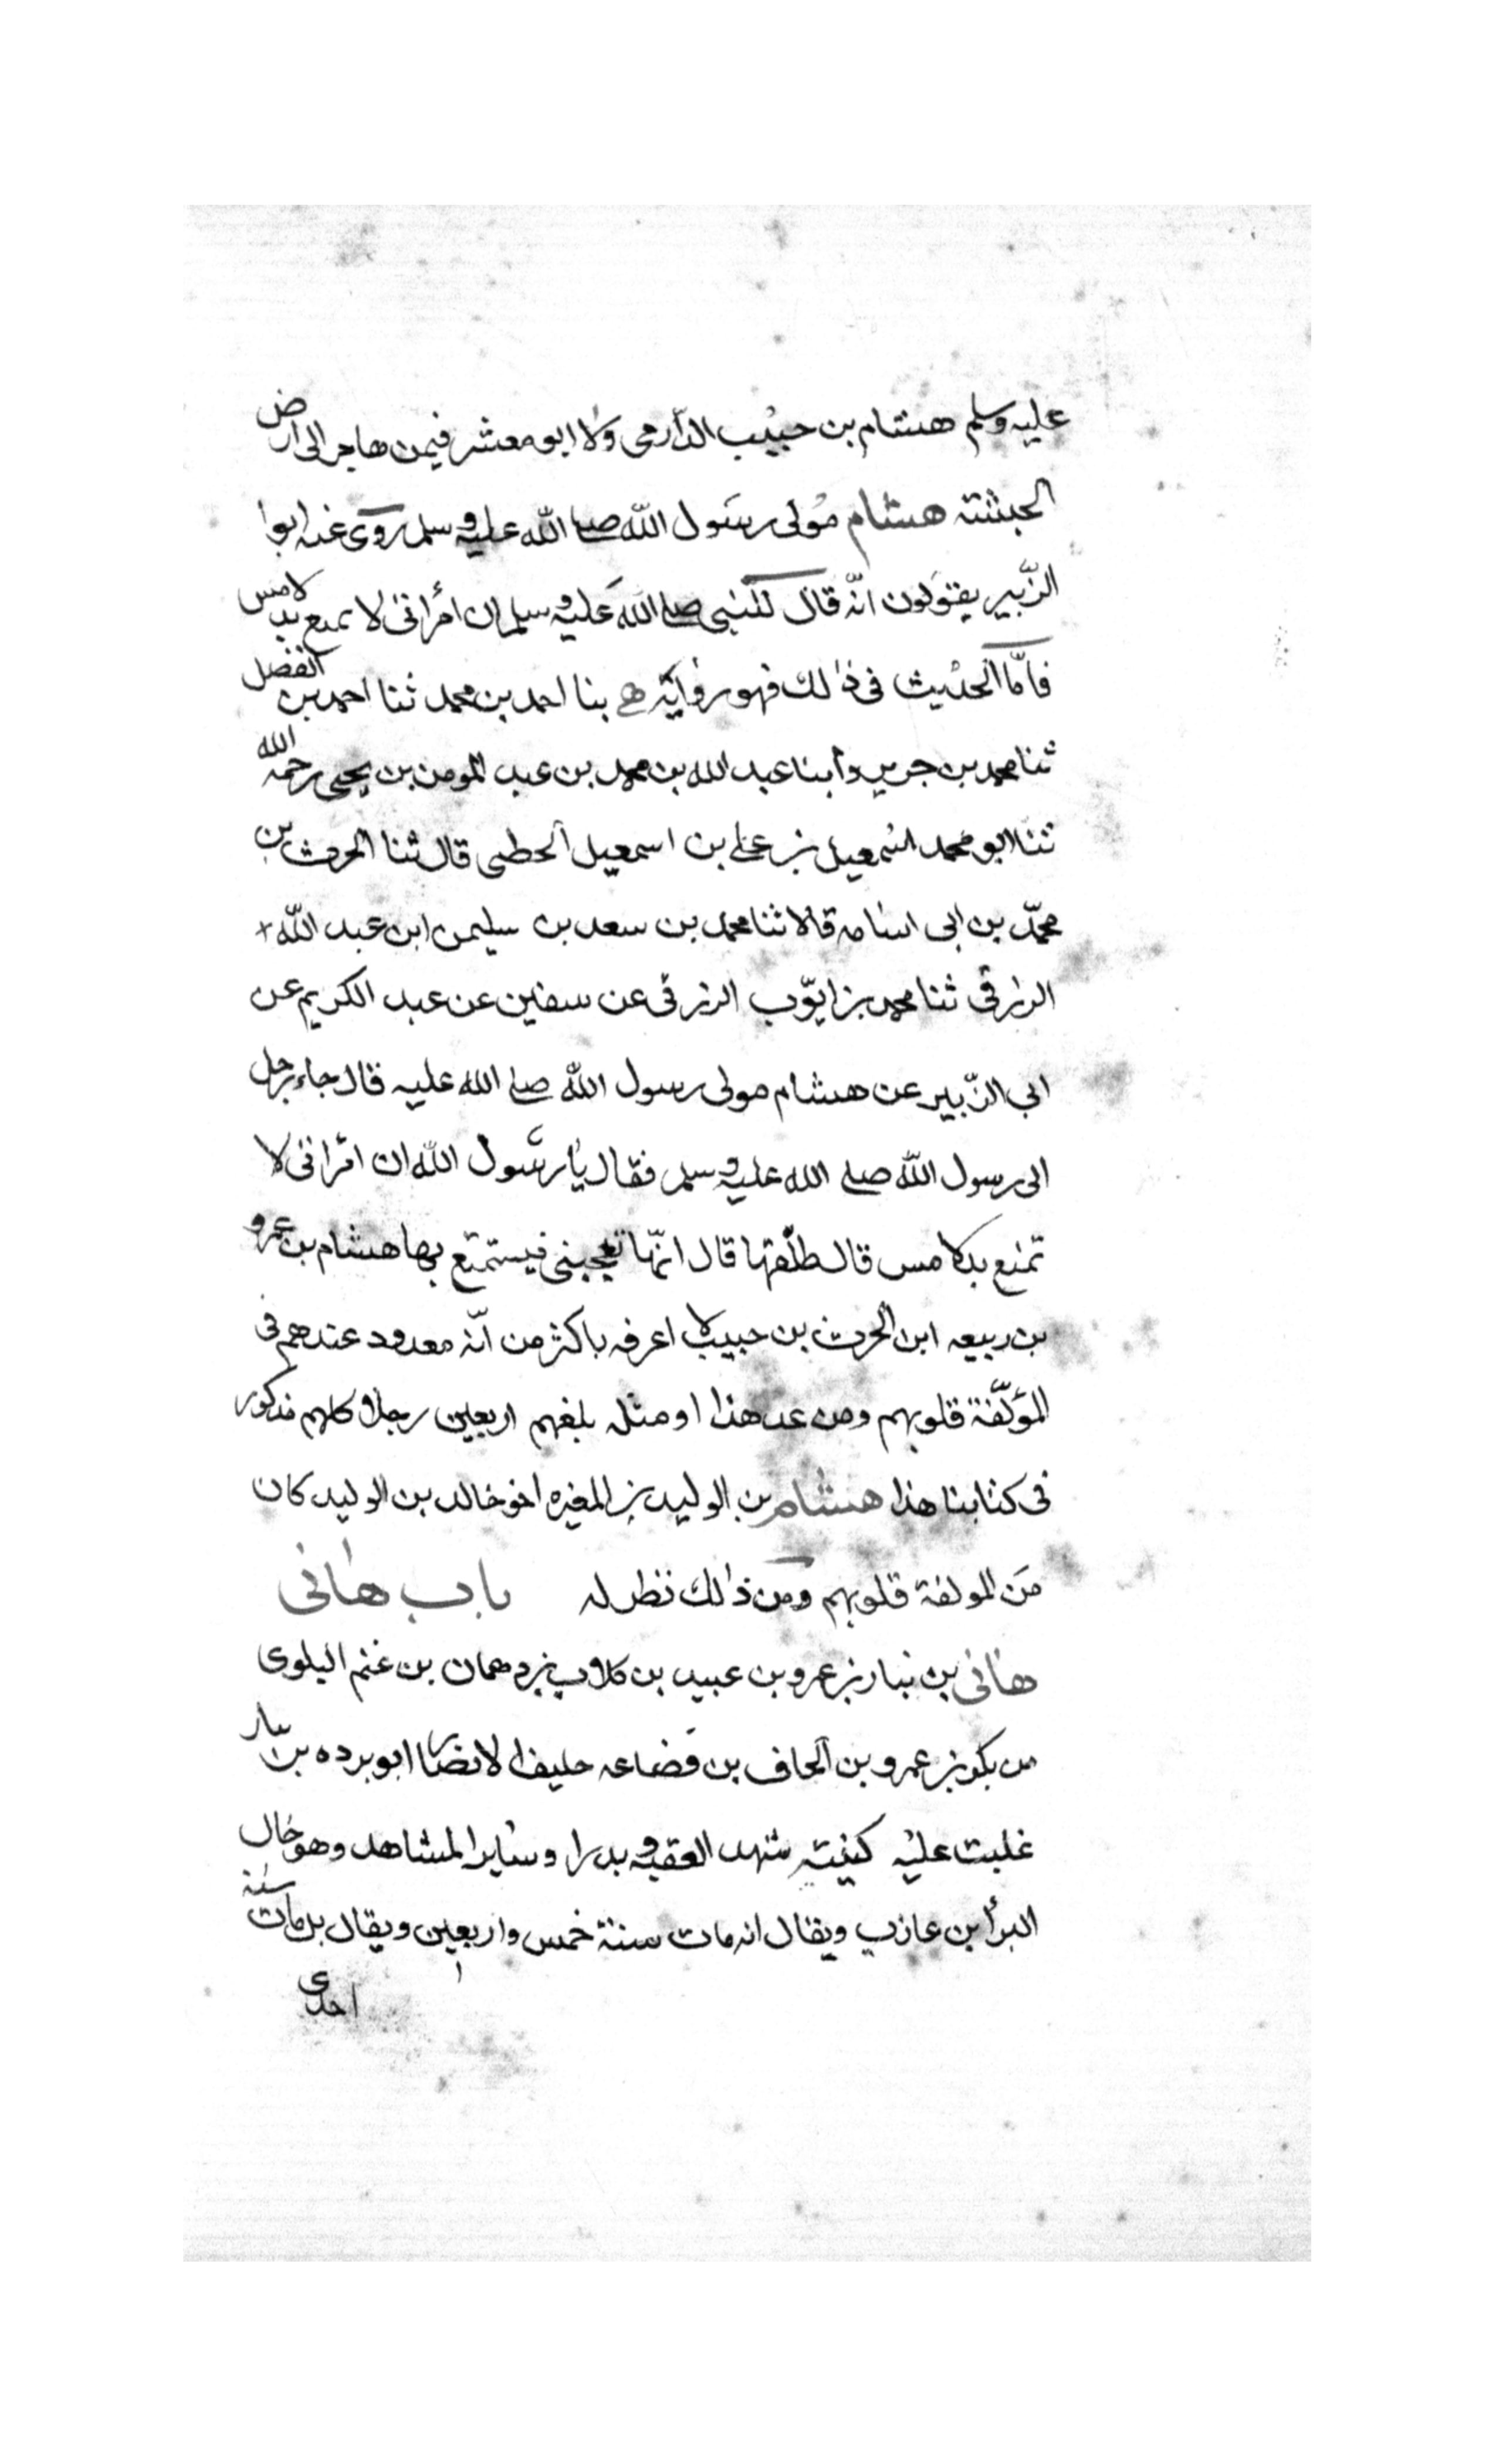 عليه وسلم هشام بن حبيب الدارمى ولا ابو معشر فيمن هاجر الى ارض
الحبشة هشام مولى رسول الله صلى الله عليه وسلم روى عنه ابوا
الزبير يقولون انه قال للنبى صلى الله عليه وسلم ان امرأتى لا تمنع يد لامس
فاما الحديث فى ذلك فهو رواية بنا احمد بن محمد ثنا احمد بن الفضل
ثنا محمد بن جرير وأبنا عبد الله بن محمد بن عبد المومن بن يحيى رحمه الله
ثنا ابو محمد اسمعيل بن على بن اسمعيل الحطبى قال ثنا الحرث بن
محمد بن ابى اسامه قالا ثنا محمد بن سعد بن سليمن ابن عبد الله
الرزقى ثنا محمد بن ايوب الرزقى عن سفين عن عبد الكريم عن
ابى الزبير عن هشام مولى رسول الله صلى الله عليه قال جاء رجل
الى رسول الله صلى الله عليه وسلم فقال يا رسول الله ان امرأتى لا
تمنع يد لامس قال طلقها قال انها تعجبنى فيستمتع بها هشام بن عمرو
بن ربيعه ابن الحرث بن حبيب لا اعرفه باكثر من انه معدود عندهم فى
المؤلفة قلوبهم ومن عد هذا او مثله بلغهم اربعين رجلا كلهم مذكور
فى كتابنا هذا هشام بن الوليد بن المغيره اخو خالد بن الوليد كان
من المولفة قلوبهم ومن ذلك نظر له باب هانى
هانى بن نيار بن عمرو بن عبيد بن كلاب بن دهمان بن غنم البلوى
من بكو بن عمرو بن الحاف بن قضاعه حليفا لانضار ابو برده بن نيار
غلبت عليه كنيته شهد العقبه وبدرا وساير المشاهد وهو خال
البرأ بن عازب ويقال انه مات سنة خمس واربعين ويقال بل مات سنة
احدى